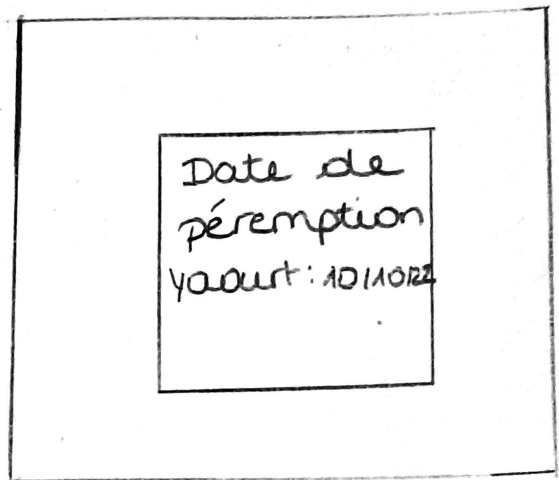 Date de
péremption
Yaourt : 10/10/22